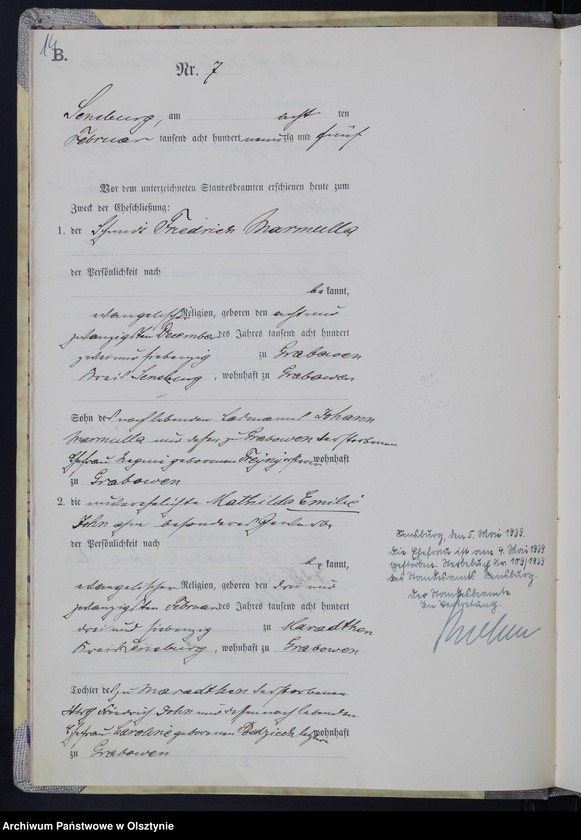 14
B.
Nr. 7
Sensburg, am acht ten
Februar tausend acht hundert neunzig und fünf
Vor dem unterzeichneten Standesbeamten erschienen heute zum
Zweck der Eheschließung:
1. der Schmied Friedrich Marmulla
der Persönlichkeit nach
be kannt,
evangelischer Religion, geboren den acht und
zwanzigsten December des Jahres tausend acht hundert
zwei und siebenzig zu Grabowen
Kreis Sensburg, wohnhaft zu Grabowen
Sohn des noch lebenden Johann
Marmulla und dessen zu Grabowen verstorbenen
Ehefrau geborenen wohnhaft
zu Grabowen
2. die unverehelichte Mathilde Emilie
John ohne besonderes Gewerbe
der Persönlichkeit nach
be kannt,
evangelischer Religion, geboren den drei und
zwanzigsten Februar des Jahres tausend acht hundert
drei und siebenzig zu Maradtken
Kreis Sensburg, wohnhaft zu Grabowen
Tochter des zu Maradtken verstorbenen
Friedrich John und dessen noch lebenden
Ehefrau Caroline geborenen wohnhaft
zu Grabowen
Sensburg, den 5. Mai 1939.
Die Ehefrau ist am 4. Mai 1939
gestorben. Sterbebuch Nr. 109/1939
des Standesamts Sensburg.
Der Standesbeamte
In Vertretung.
Archiwum Państwowe w Olsztynie